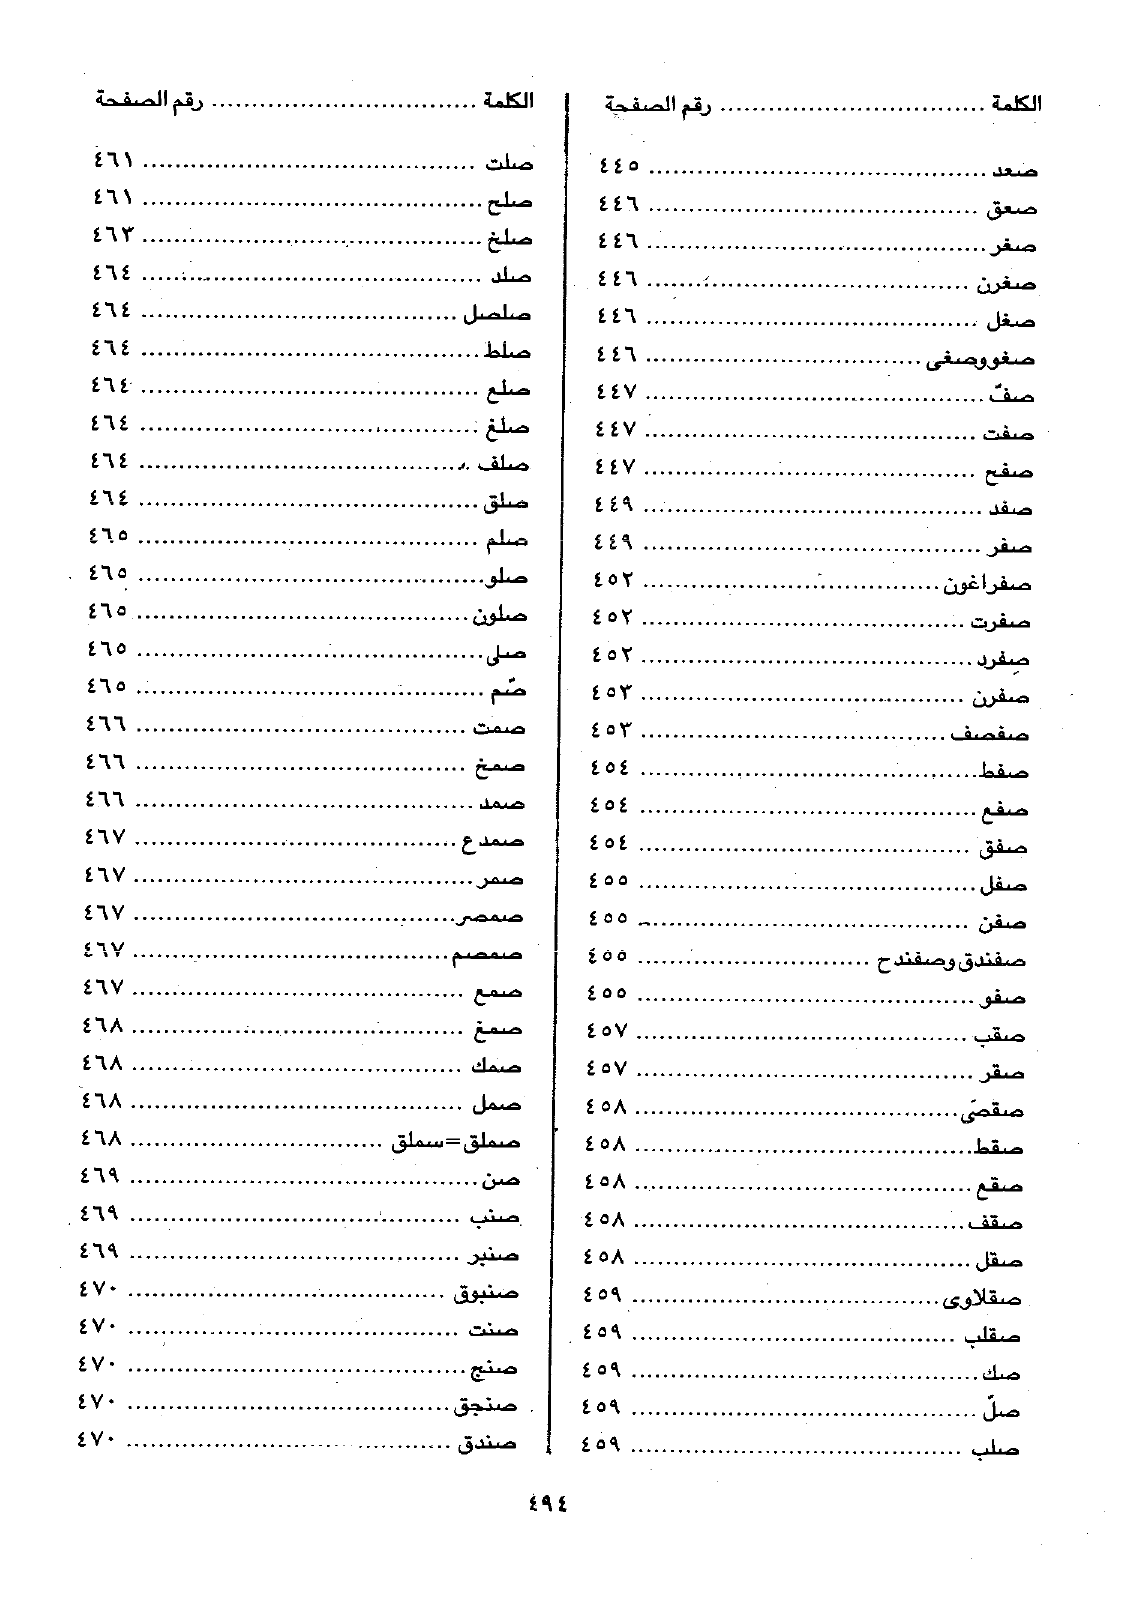 الكلمة ................................ رقم الصفحة
صعد ................................ ٤٤٥
صعق ................................ ٤٤٦
صفر ................................ ٤٤٦
صغرن ................................ ٤٤٦
صغل ................................ ٤٤٦
صغو وصغى ................................ ٤٤٦
صفّ ................................ ٤٤٧
صفت ................................ ٤٤٧
صفح ................................ ٤٤٧
صفد ................................ ٤٤٩
صفر ................................ ٤٤٩
صفراغون ................................ ٤٥٢
صفرت ................................ ٤٥٢
صفرد ................................ ٤٥٢
صفرن ................................ ٤٥٣
صفصف ................................ ٤٥٣
صفط ................................ ٤٥٤
صفع ................................ ٤٥٤
صفق ................................ ٤٥٤
صفل ................................ ٤٥٥
صفن ................................ ٤٥٥
صفندق وصفندح ................................ ٤٥٥
صفو ................................ ٤٥٥
صقب ................................ ٤٥٧
صقر ................................ ٤٥٧
صقصّى ................................ ٤٥٨
صقط ................................ ٤٥٨
صقع ................................ ٤٥٨
صقف ................................ ٤٥٨
صقل ................................ ٤٥٨
صقلاوى ................................ ٤٥٩
صقلب ................................ ٤٥٩
صك ................................ ٤٥٩
صلّ ................................ ٤٥٩
صلب ................................ ٤٥٩
الكلمة ................................ رقم الصفحة
صلت ................................ ٤٦١
صلح ................................ ٤٦١
صلخ ................................ ٤٦٣
صلد ................................ ٤٦٤
صلصل ................................ ٤٦٤
صلط ................................ ٤٦٤
صلع ................................ ٤٦٤
صلغ ................................ ٤٦٤
صلف ................................ ٤٦٤
صلق ................................ ٤٦٤
صلم ................................ ٤٦٥
صلو ................................ ٤٦٥
صلون ................................ ٤٦٥
صلى ................................ ٤٦٥
صّم ................................ ٤٦٥
صمت ................................ ٤٦٦
صمخ ................................ ٤٦٦
صمد ................................ ٤٦٦
صمدع ................................ ٤٦٧
صمر ................................ ٤٦٧
صمصر ................................ ٤٦٧
صمصم ................................ ٤٦٧
صمع ................................ ٤٦٧
صمغ ................................ ٤٦٨
صمك ................................ ٤٦٨
صمل ................................ ٤٦٨
صملق=سملق ................................ ٤٦٨
صن ................................ ٤٦٩
صنب ................................ ٤٦٩
صنبر ................................ ٤٦٩
صنبوق ................................ ٤٧٠
صنت ................................ ٤٧٠
صنج ................................ ٤٧٠
صنجق ................................ ٤٧٠
صندق ................................ ٤٧٠
٤٩٤